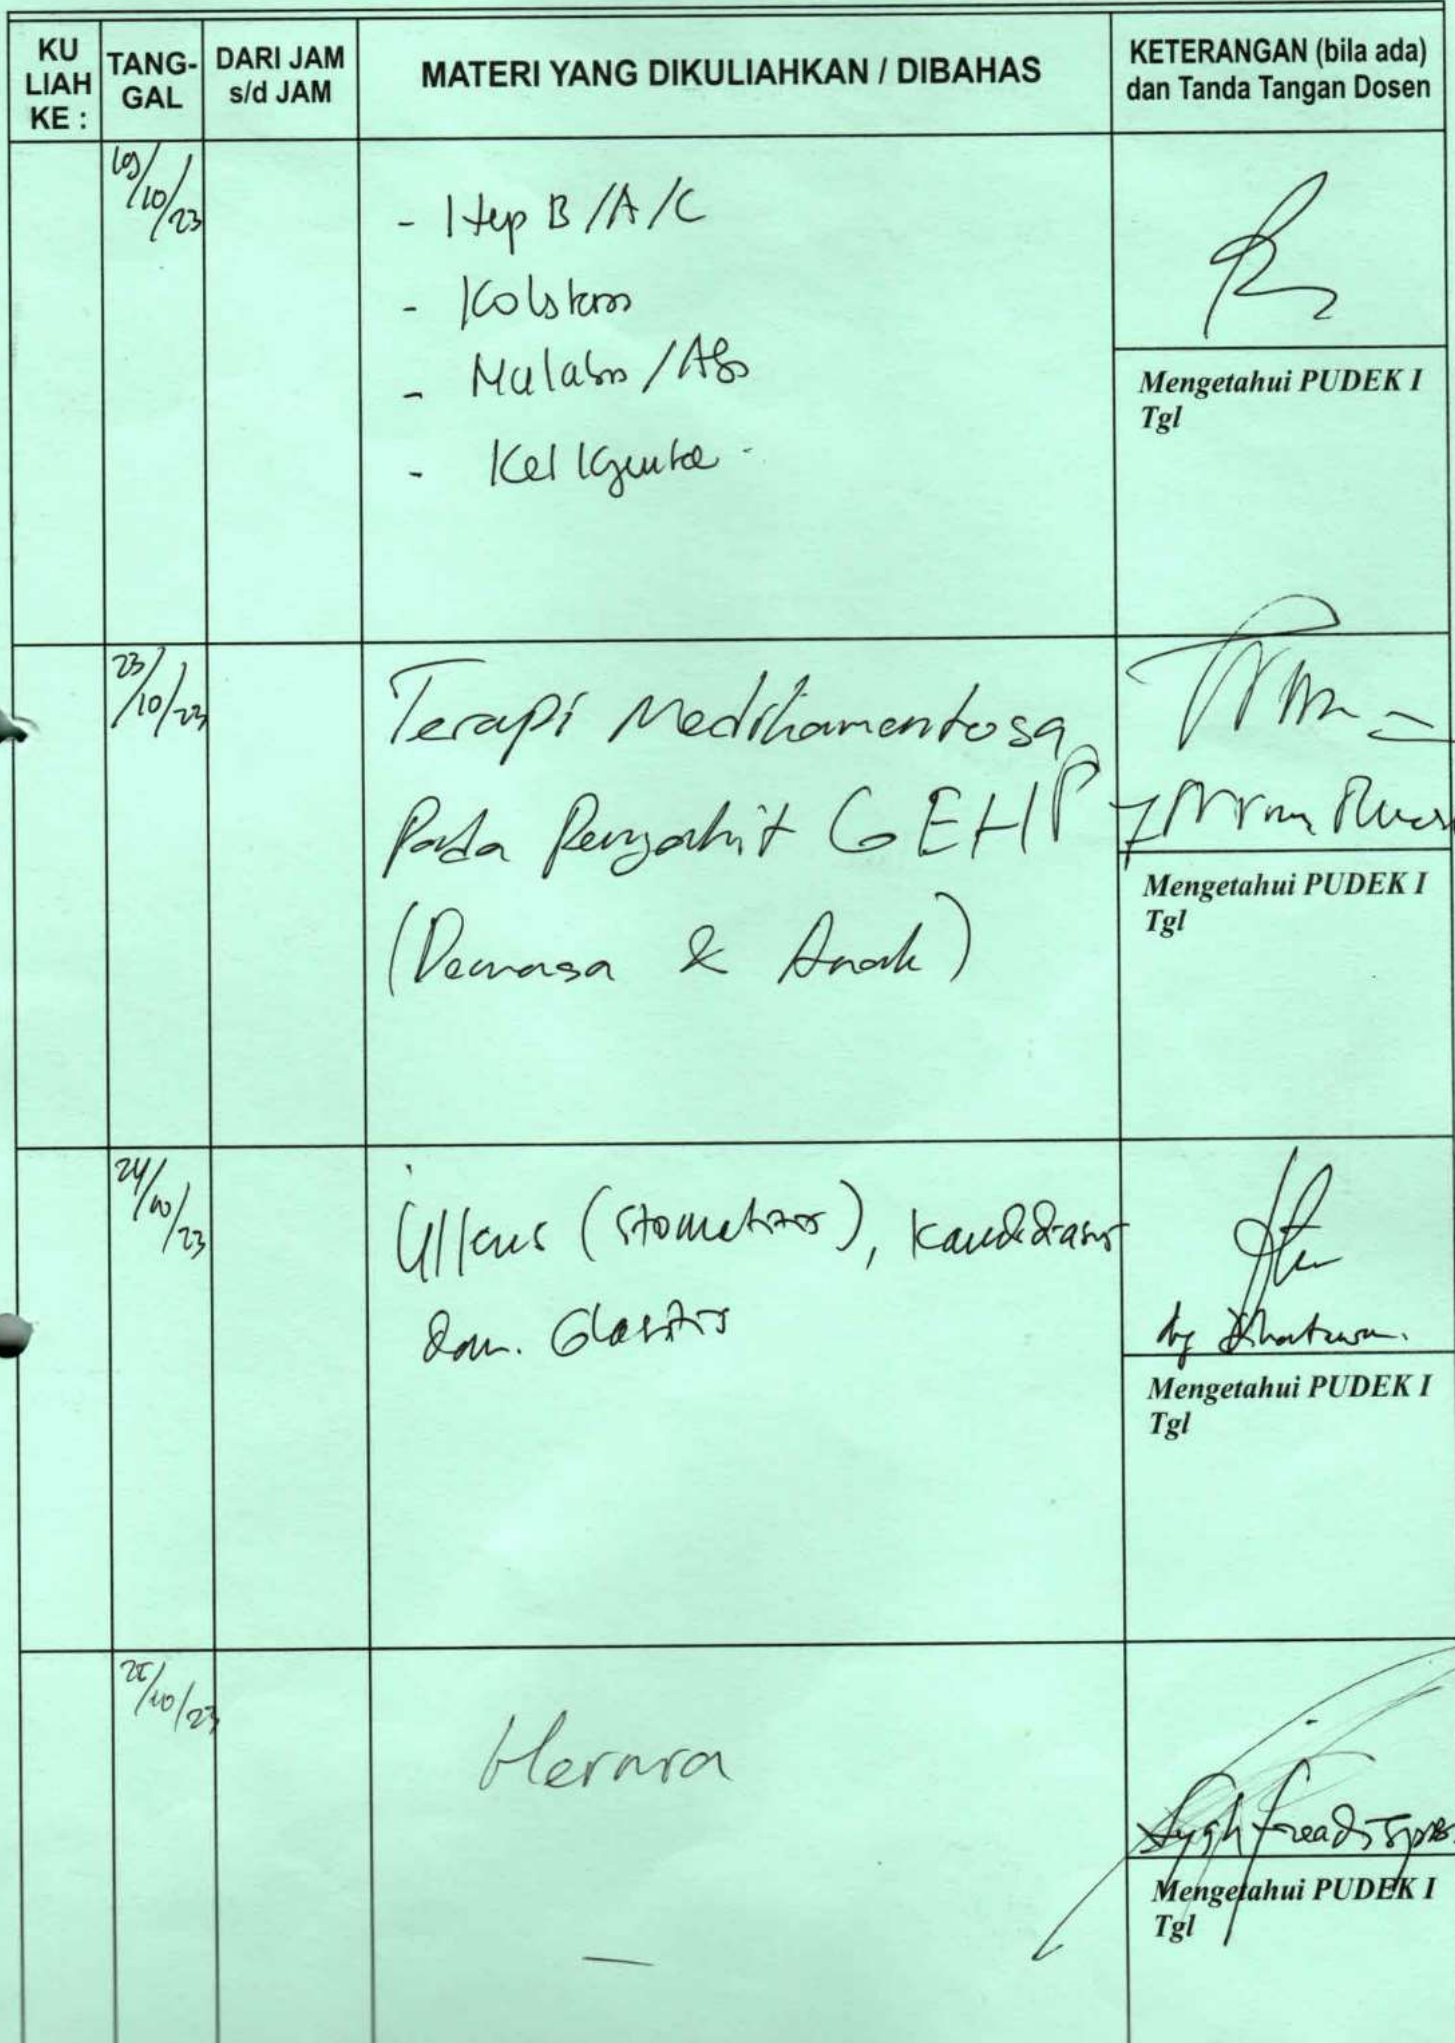 KU LIAH KE :
TANG-GAL
DARI JAM s/d JAM
MATERI YANG DIKULIAHKAN / DIBAHAS
KETERANGAN (bila ada) dan Tanda Tangan Dosen
/10/23
- Hep B/A/C
-
-
- Kel
Mengetahui PUDEK I
Tgl
23/10/23
Terapi Medikamentosa
Pada Penyakit GEHP
(Dewasa & Anak)
Mengetahui PUDEK I
Tgl
24/10/23
Ulkus (stomatitis), Kandidiasis
dan. Glositis
Mengetahui PUDEK I
Tgl
25/10/23
Hernia
Mengetahui PUDEK I
Tgl